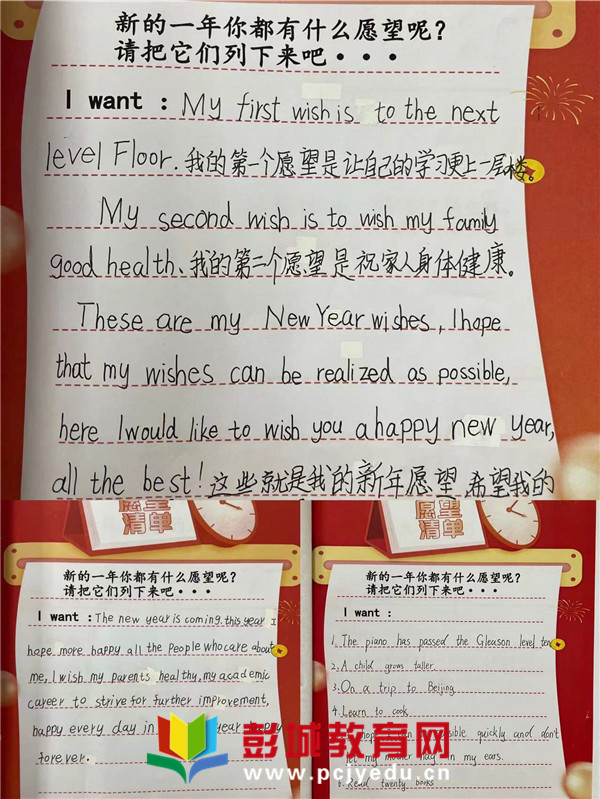 新的一年你都有什么愿望呢？
请把它们列下来吧・・・
I want : My first wish is to the next
level Floor. 我的第一个愿望是让自己的学习更上一层楼。
My second wish is to wish my family
good health、我的第二个愿望是祝家人身体健康。
These are my New Year wishes, I hope
that my wishes can be realized as possible,
here I would like to wish you a happy new year,
all the best! 这些就是我的新年愿望 希望我的
愿望
清单
新的一年你都有什么愿望呢？
请把它们列下来吧・・・
I want : The new year is coming. this year I
hope more happy all the people who care about
me, I wish my parents healthy, my academic
career to strive for further improvement,
happy every day in year happy
forever.
愿望
清单
新的一年你都有什么愿望呢？
请把它们列下来吧・・・
I want :
1. The piano has passed the Gleason level ten
2. A child grows taller
3. On a trip to Beijing
4. Learn to cook
quickly and don't
let my mother nag in my ears.
6. Read twenty books
彭城教育网
www.pcjyedu.cn